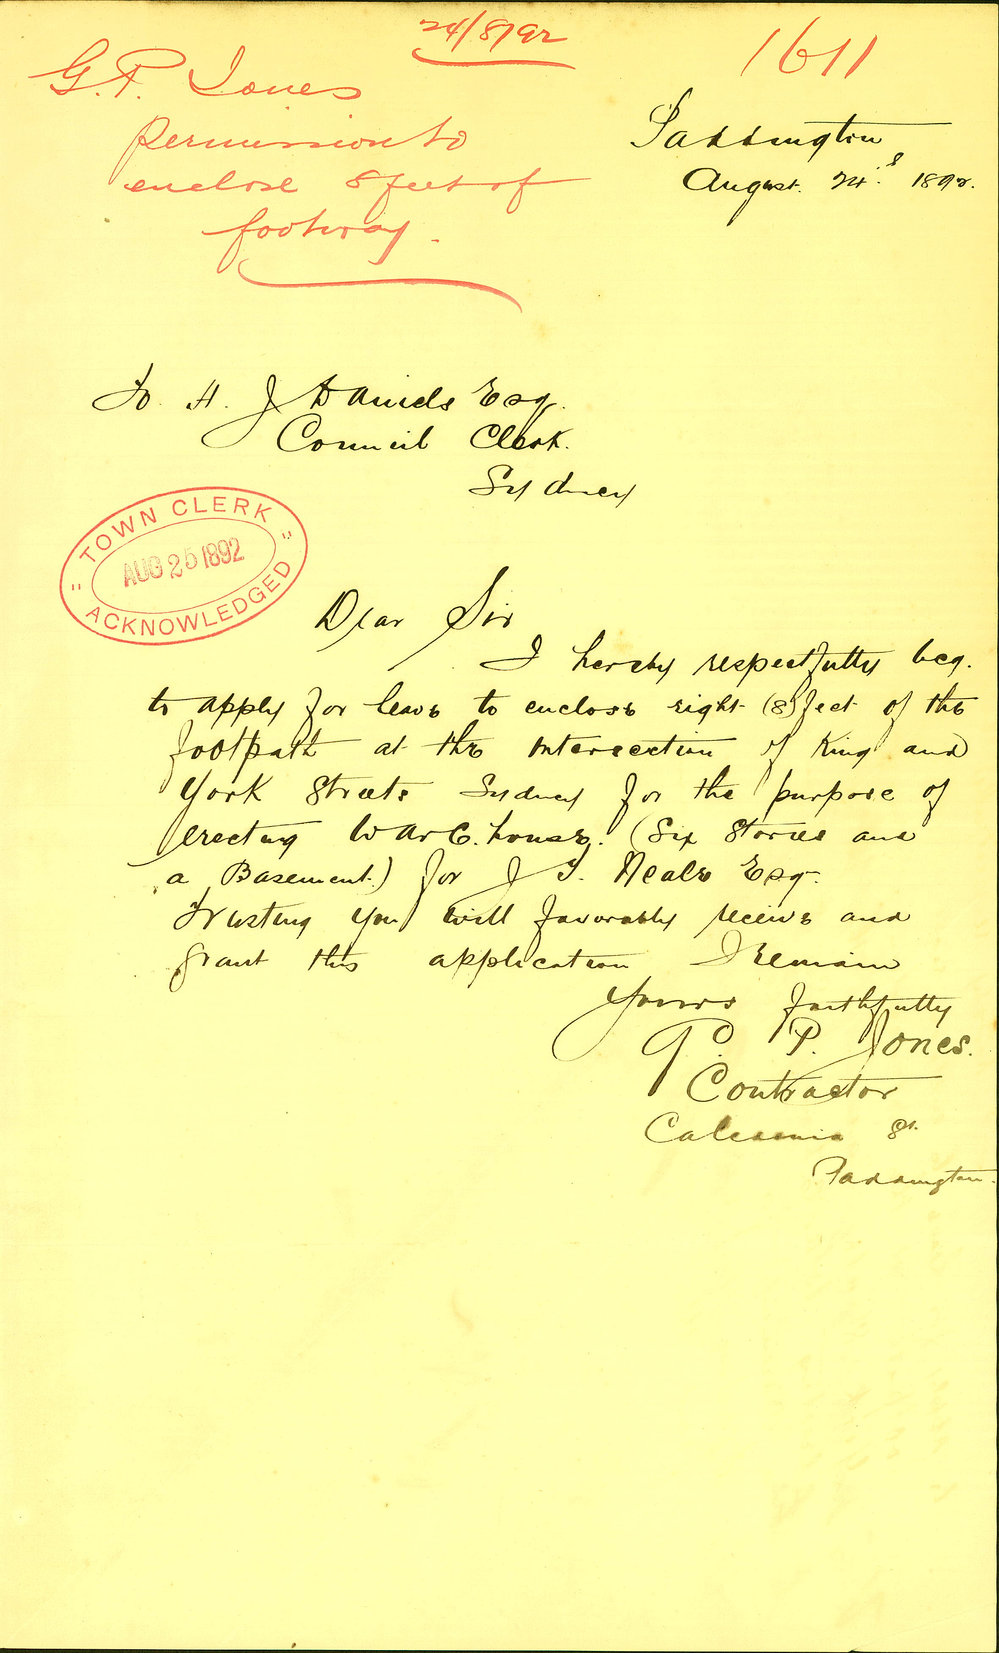 24/8/92
1611
G. P. Jones
Permission to
enclose 8 feet of
footway.
Paddington
August. 24th 1892.
To. H. J Daniels Esq.
Council Clerk.
Sydney
TOWN CLERK
AUG 25 1892
ACKNOWLEDGED
Dear Sir
I hereby respectfully beg.
to apply for leave to enclose eight (8) feet of the
footpath at the intersection of King and
York Streets Sydney for the purpose of
erecting Warehouse. (Six Stories and
a Basement.) for J T. Neale Esq.
Trusting you will favorably receive and
grant this application I remain
Yours faithfully
G. P. Jones.
Contractor
Caledonia St.
Paddington.